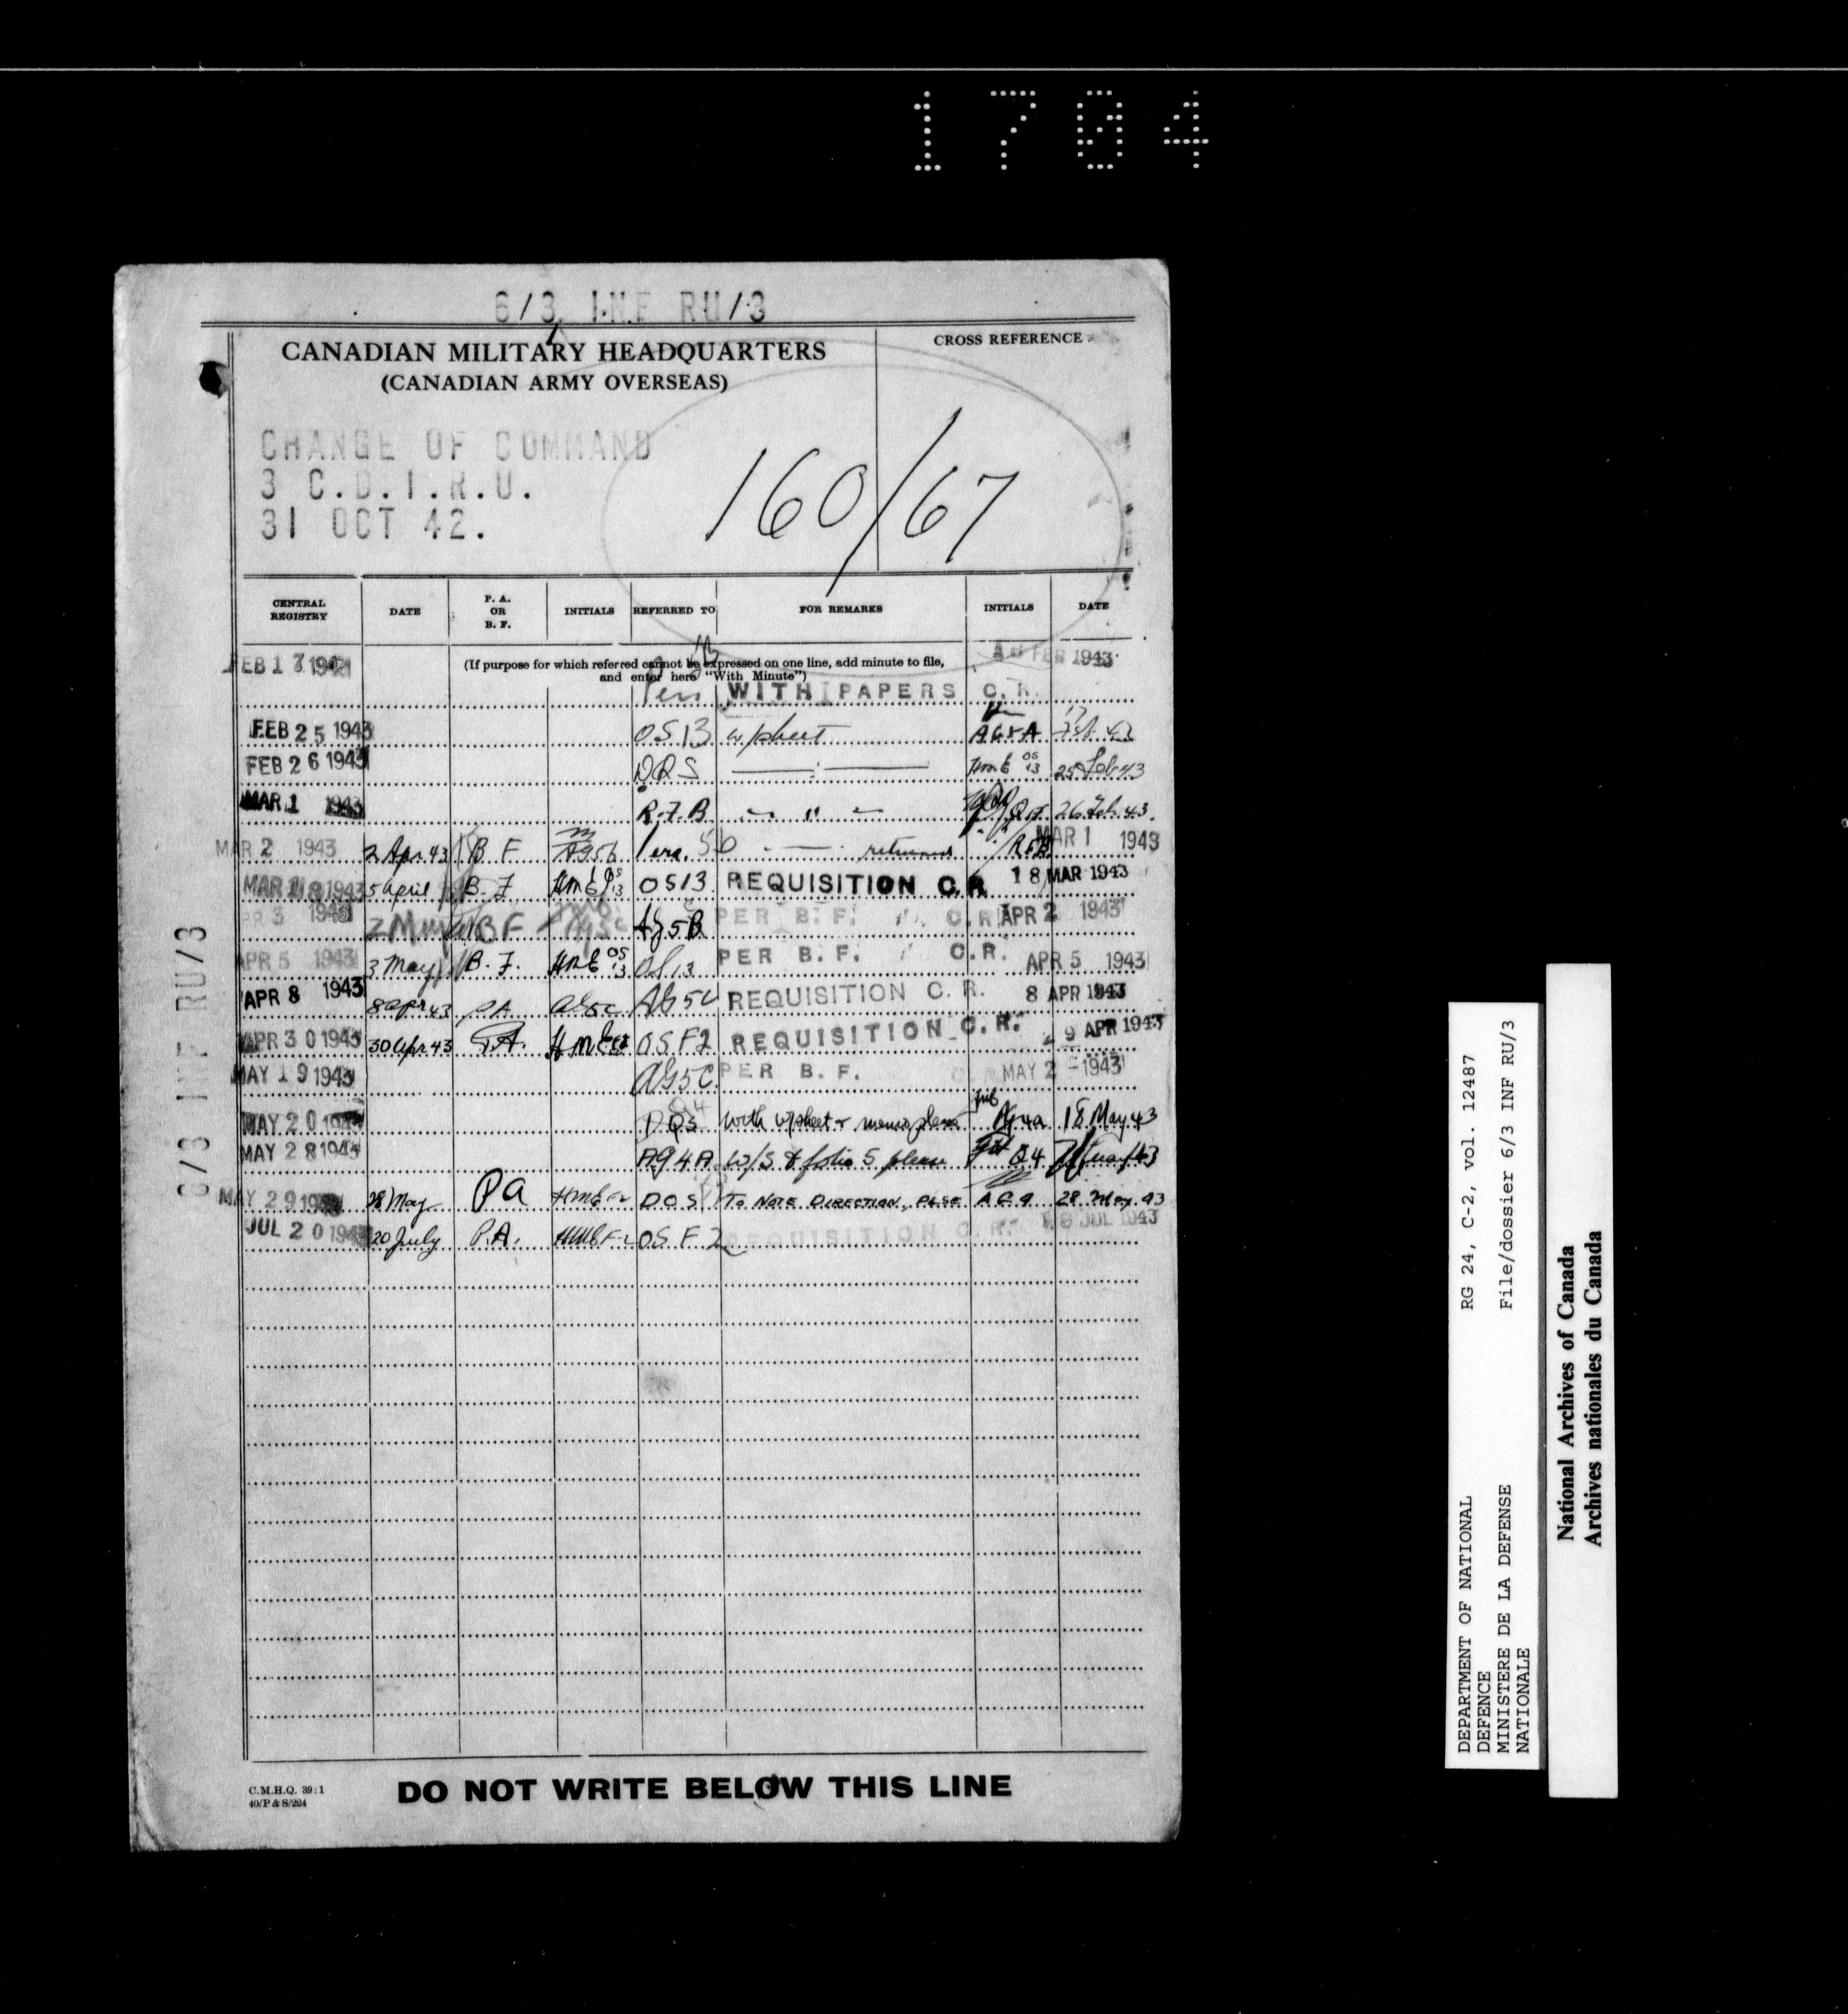 1704
6/3 INF RU/3
CANADIAN MILITARY HEADQUARTERS
(CANADIAN ARMY OVERSEAS)
CROSS REFERENCE
CHANGE OF COMMAND
3 C.D.I.R.U.
31 OCT 42.
160/67
CENTRAL REGISTRY DATE P. A. OR B. F. INITIALS REFERRED TO FOR REMARKS INITIALS DATE
(If purpose for which referred cannot be expressed on one line, add minute to file,
and enter here "With Minute")
FEB 17 194 FEB 1943
WITH PAPERS C. R.
FEB 25 1943 OS13 w/sheet AG4A
FEB 26 1943 DQS HmE OS 13 25 Feb 43
MAR 1 1943 R.F.B. " 26 Feb. 43.
MAR 2 1943 2 Apr. 43 B F AG5b returned RFB MAR 1 1943
MAR 18 1943 5 April B. F. HmE OS 13 OS13 REQUISITION C.R. 18 MAR 1943
APR 3 1943 2 May B F Ag5B PER B. F. C.R. APR 2 1943
APR 5 1943 3 May B. F. HmE OS 13 OS13 PER B. F. C.R. APR 5 1943
APR 8 1943 8 Apr 43 PA AG5C AG5C REQUISITION C. R. 8 APR 1943
APR 30 1943 30 Apr 43 P.A. HmE OSF2 REQUISITION C.R. 29 APR 1943
MAY 19 1943 AG5C. PER B. F. MAY 2 - 1943
MAY 20 1943 DQS With w/sheet + memo please Ag4a 18 May 43
MAY 28 1943 Ag4A W/S & folio 5 please Q4
MAY 29 194 28 May PA HmE F2 DOS TO NOTE DIRECTION, PLSE AG 28 May. 43
JUL 20 1943 20 July P.A. HmE F2 OSF2 REQUISITION C.R. JUL 1943
6/3 INF RU/3
C.M.H.Q. 39:1
40/P & S/224
DO NOT WRITE BELOW THIS LINE
DEPARTMENT OF NATIONAL RG 24, C-2, vol. 12487
DEFENCE
MINISTERE DE LA DEFENSE File/dossier 6/3 INF RU/3
NATIONALE
National Archives of Canada
Archives nationales du Canada